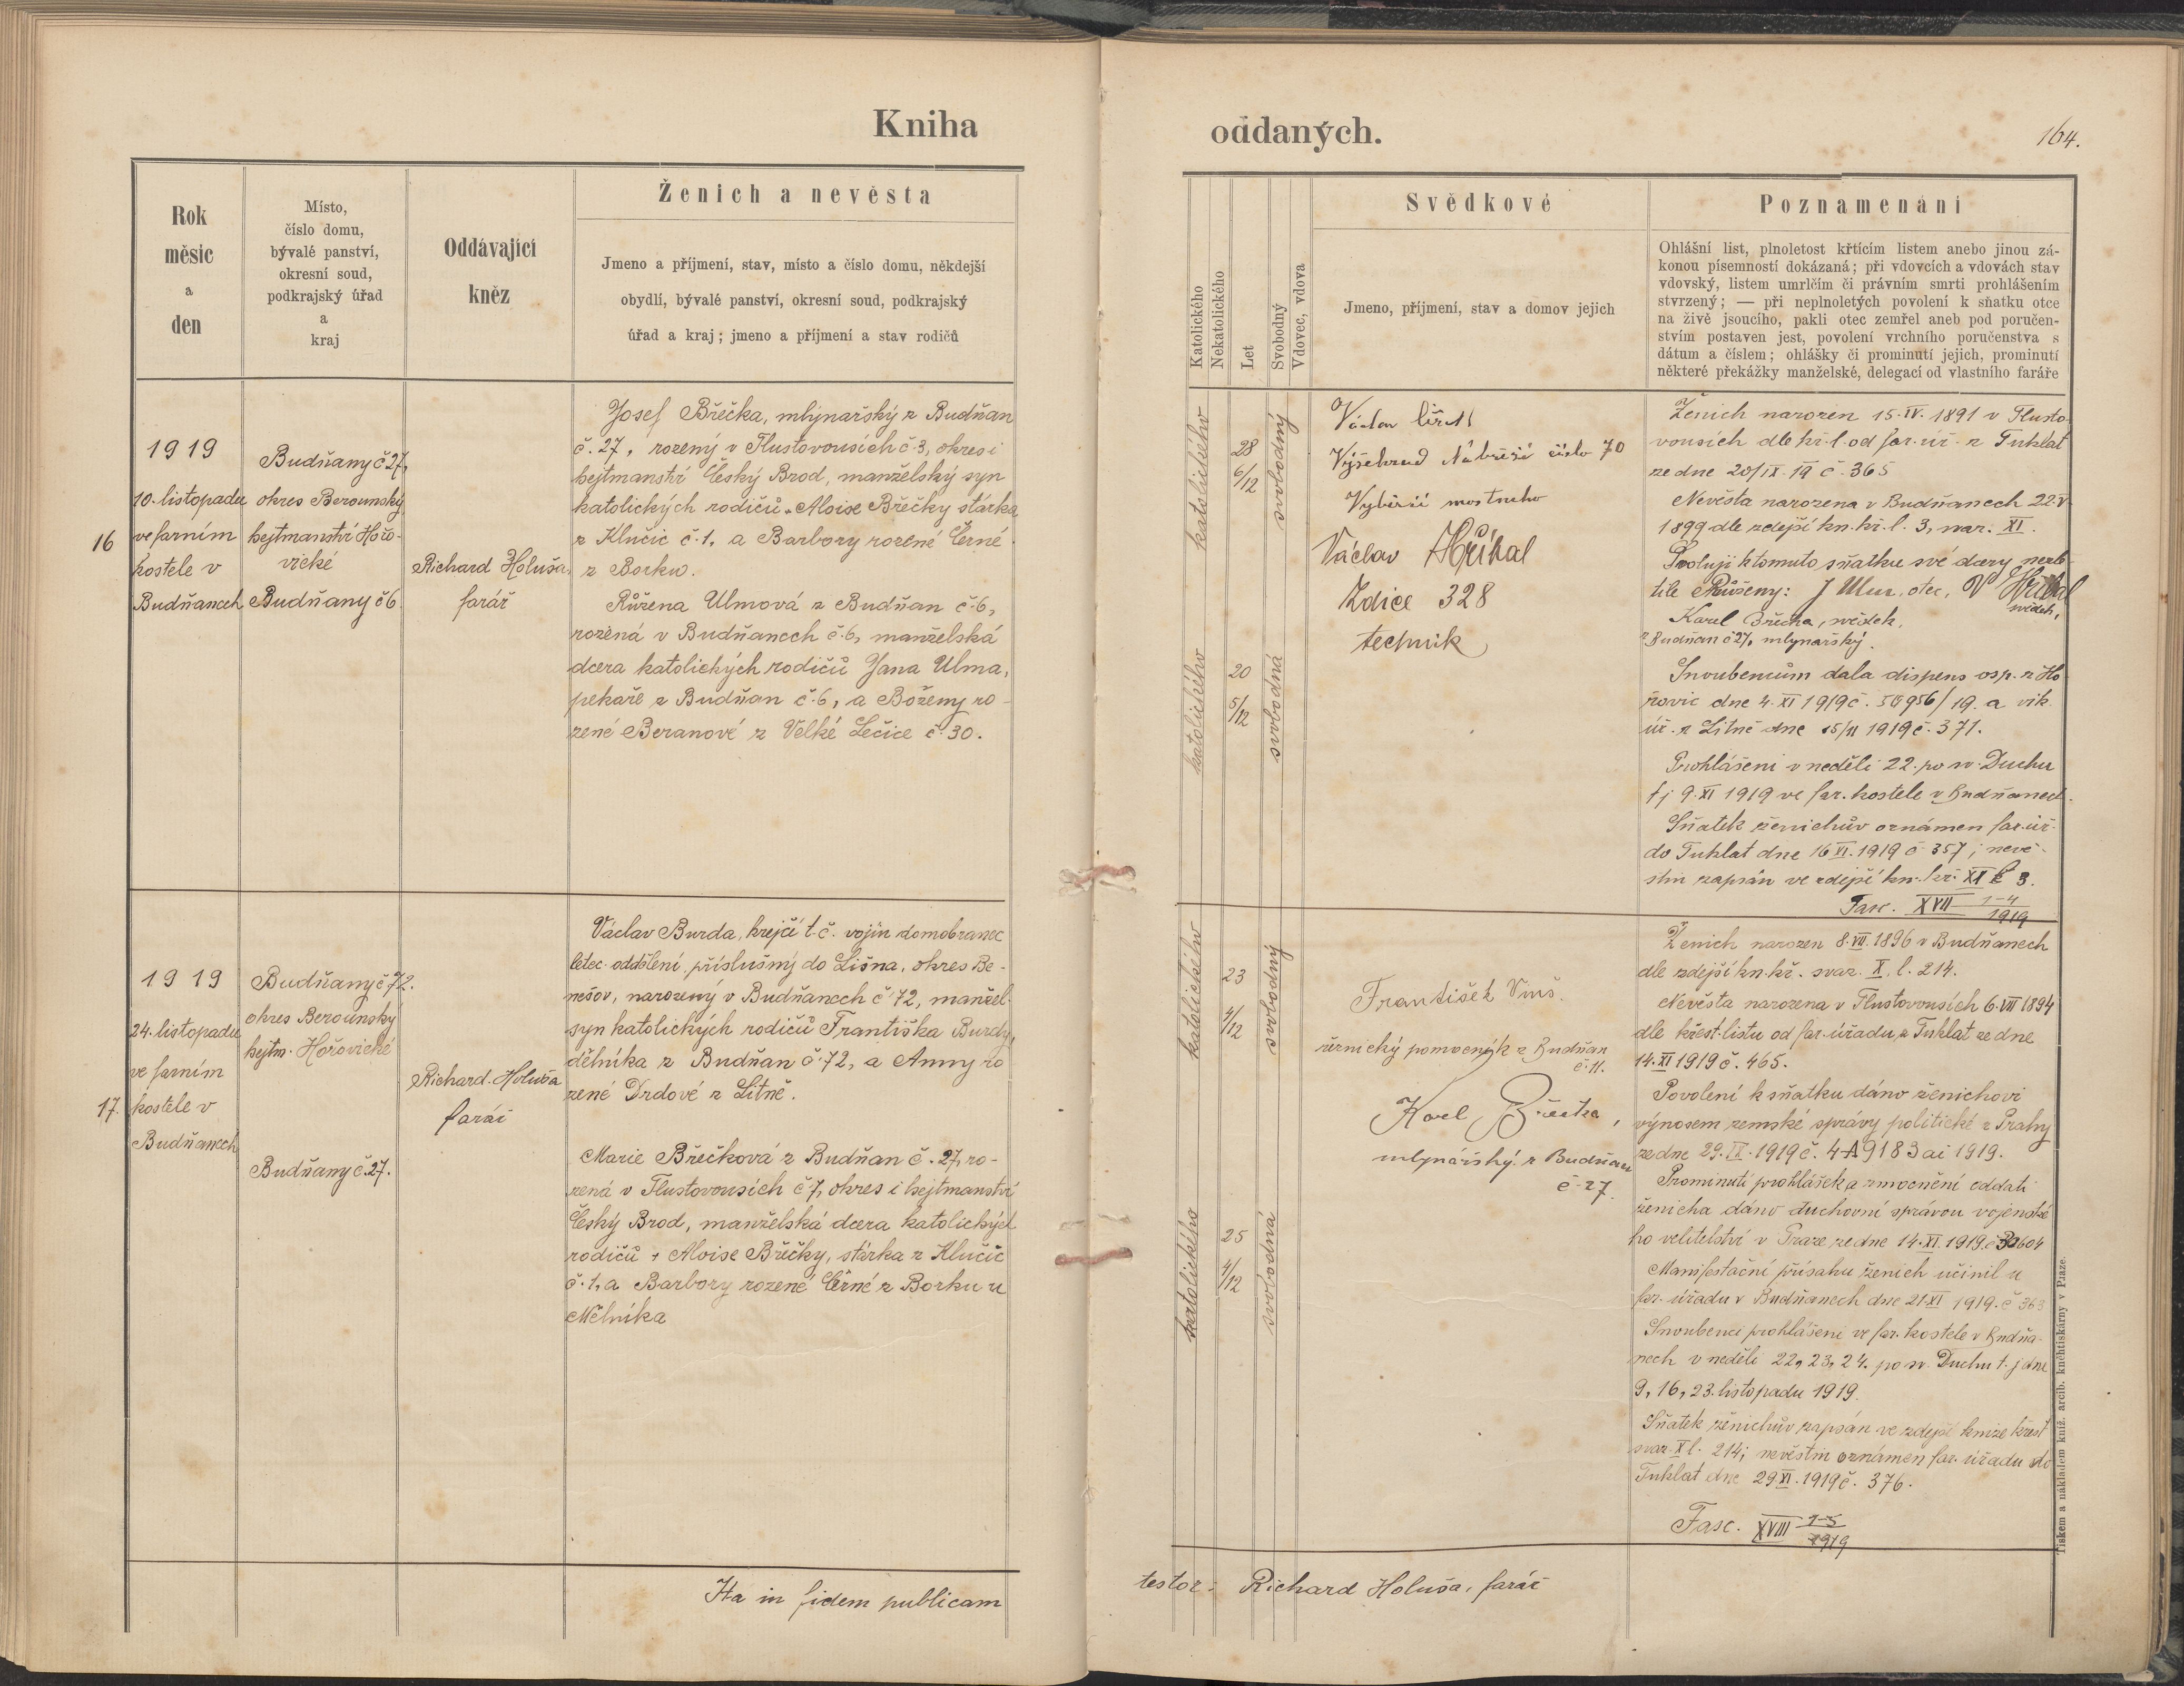 Kniha
Rok
měsíc
a
den
Místo,
číslo domu,
bývalé panství,
okresní soud,
podkrajský úřad
a
kraj
Oddávající
kněz
Ženich a nevěsta
Jmeno a příjmení, stav, místo a číslo domu, někdejší
obydlí, bývalé panství, okresní soud, podkrajský
úřad a kraj; jmeno a příjmení a stav rodičů
16
1919
10. listopadu
ve farním
kostele v
Budňanech
Budňany č 27,
okres Berounský
hejtmanství Hořo-
vické
Budňany č 6
Richard Holuša,
farář
Josef Břečka, mlynařský z Budňan
č. 27, rozený v Tlustovousích č 3, okres i
hejtmanství Český Brod, manželský syn
katolických rodičů + Aloise Břečky stárka
z Klučic č. 1, a Barbory rozené Černé
z Borku.
Růžena Ulmová z Budňan č. 6,
rozená v Budňanech č. 6, manželská
dcera katolických rodičů Jana Ulma,
pekaře z Budňan č. 6, a Boženy ro-
zené Beranové z Velké Lečice č. 30.
17.
1919
24. listopadu
ve farním
kostele v
Budňanech
Budňany č 72.
okres Berounský
hejtm. Hořovické
Budňany č. 27.
Richard Holuša
farář
Václav Burda, krejčí t. č. vojín domobranec
letec. oddělení, příslušný do Lišna, okres Be-
nešov, narozený v Budňanech č 72, manžel.
syn katolických rodičů Františka Burdy,
dělníka z Budňan č. 72, a Anny ro
zené Drdové z Litně.
Marie Břečková z Budňan č. 27, ro-
zená v Tlustovousích č 7, okres i hejtmanství
Český Brod, manželská dcera katolických
rodičů + Aloise Břečky, stárka z Klučic
č. 1, a Barbory rozené Černé z Borku u
Mělníka
Ita in fidem publicam
oddaných.
164.
Katolického
Nekatolického
Let
Svobodný
Vdovec, vdova
Svědkové
Jmeno, příjmení, stav a domov jejich
Poznamenání
Ohlášní list, plnoletost křtícím listem anebo jinou zá-
konou písemností dokázaná; při vdovcích a vdovách stav
vdovský, listem umrlčím či právním smrti prohlášením
stvrzený; — při neplnoletých povolení k sňatku otce
na živě jsoucího, pakli otec zemřel aneb pod poručen-
stvím postaven jest, povolení vrchního poručenstva s
dátum a číslem; ohlášky či prominutí jejich, prominutí
některé překážky manželské, delegací od vlastního faráře
katolického
28
6/12
svobodný
katolického
20
5/12
svobodná
Václav
Vyšehrad Nábřeží číslo 70
Výběrčí mostného
Václav Hříbal
Zdice 328
technik
Ženich narozen 15. IV. 1891 v Tlusto-
vousích dle kř. l. od far. úř. z Tuklat
ze dne 20/IX. 19 č. 365
Nevěsta narozena v Budňanech 22. V.
1899 dle zdejší kn. kř. l. 3, svaz. XI.
Svoluji k tomuto sňatku své dcery nezle-
tilé Růženy: J Ulm, otec, V Hříbal
svědek,
Karel Břečka, svědek,
z Budňan č 27, mlynařský.
Snoubencům dala dispens osp. z Ho
řovic dne 4. XI 1919 č. 50956/19. a vik.
úř. z Litně dne 15/11 1919 č. 371.
Prohlášeni v neděli 22. po sv. Duchu
tj 9. XI 1919 ve far. kostele v Budňanech.
Sňatek ženichův oznámen far. úř.
do Tuklat dne 16 XI. 1919 č 357; nevě-
stin zapsán ve zdejší kn. kř. XI l 3.
Fasc. XVII 1-4/1919
katolického
23
4/12
svobodný
katolického
25
4/12
svobodná
František Vinš.
řeznický pomocník z Budňan
č. 11.
Karel Břečka,
mlynářský z Budňan
č. 27.
Ženich narozen 8. VII. 1896 v Budňanech
dle zdejší kn. kř. svaz. X, l. 214.
Nevěsta narozena v Tlustovousích 6. VII 1894
dle křest. listu od far. úřadu z Tuklat ze dne
14. XI 1919 č. 465.
Povolení k sňatku dáno ženichovi
výnosem zemské správy politické z Prahy
ze dne 29. IX. 1919 č. 4-A 9183 ai 1919.
Prominutí prohlášek a zmocnění oddati
ženicha dáno duchovní správou vojenské
ho velitelství v Praze ze dne 14. XI. 1919. č
Manifestační přísahu ženich učinil u
far. úřadu v Budňanech dne 21. XI 1919. č 363
Snoubenci prohlášeni ve far. kostele v Budňa-
nech v neděli 22, 23, 24. po sv. Duchu t. j dne
9, 16, 23. listopadu 1919.
Sňatek ženichův zapsán ve zdejší knize křest
svaz. X l. 214; nevěstin oznámen far. úřadu do
Tuklat dne 29 XI. 1919 č. 376.
Fasc. XVIII 1-5/1919
testor: Richard Holuša, farář
Tiskem a nákladem kníž. arcib. knihtiskárny v Praze.